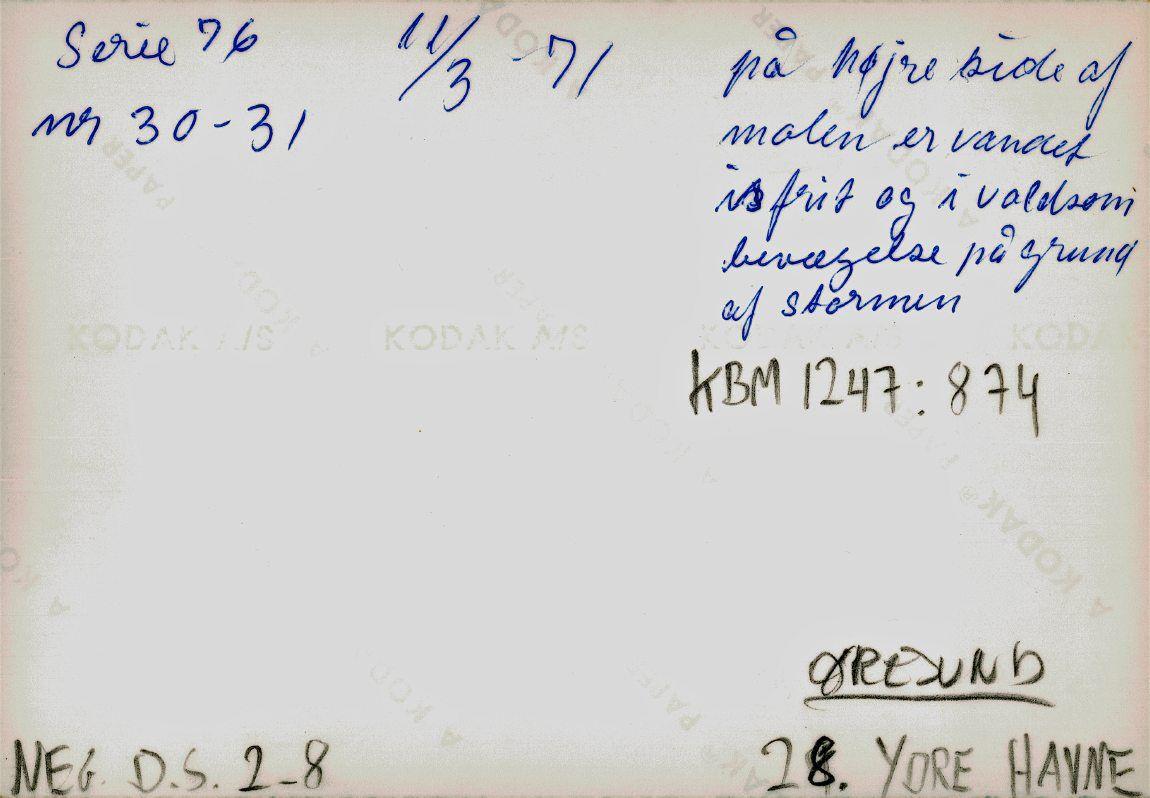 Serie 76
nr 30-31
11/3-71
på højre side af
molen er vandet
isfrit og i voldsom
bevægelse på grund
af stormen
KBM 1247:874
KODAK A/S KODAK A/S KODAK A/S KODAK
ØRESUND
NEG. D.S. 2-8
28. YDRE HAVNE